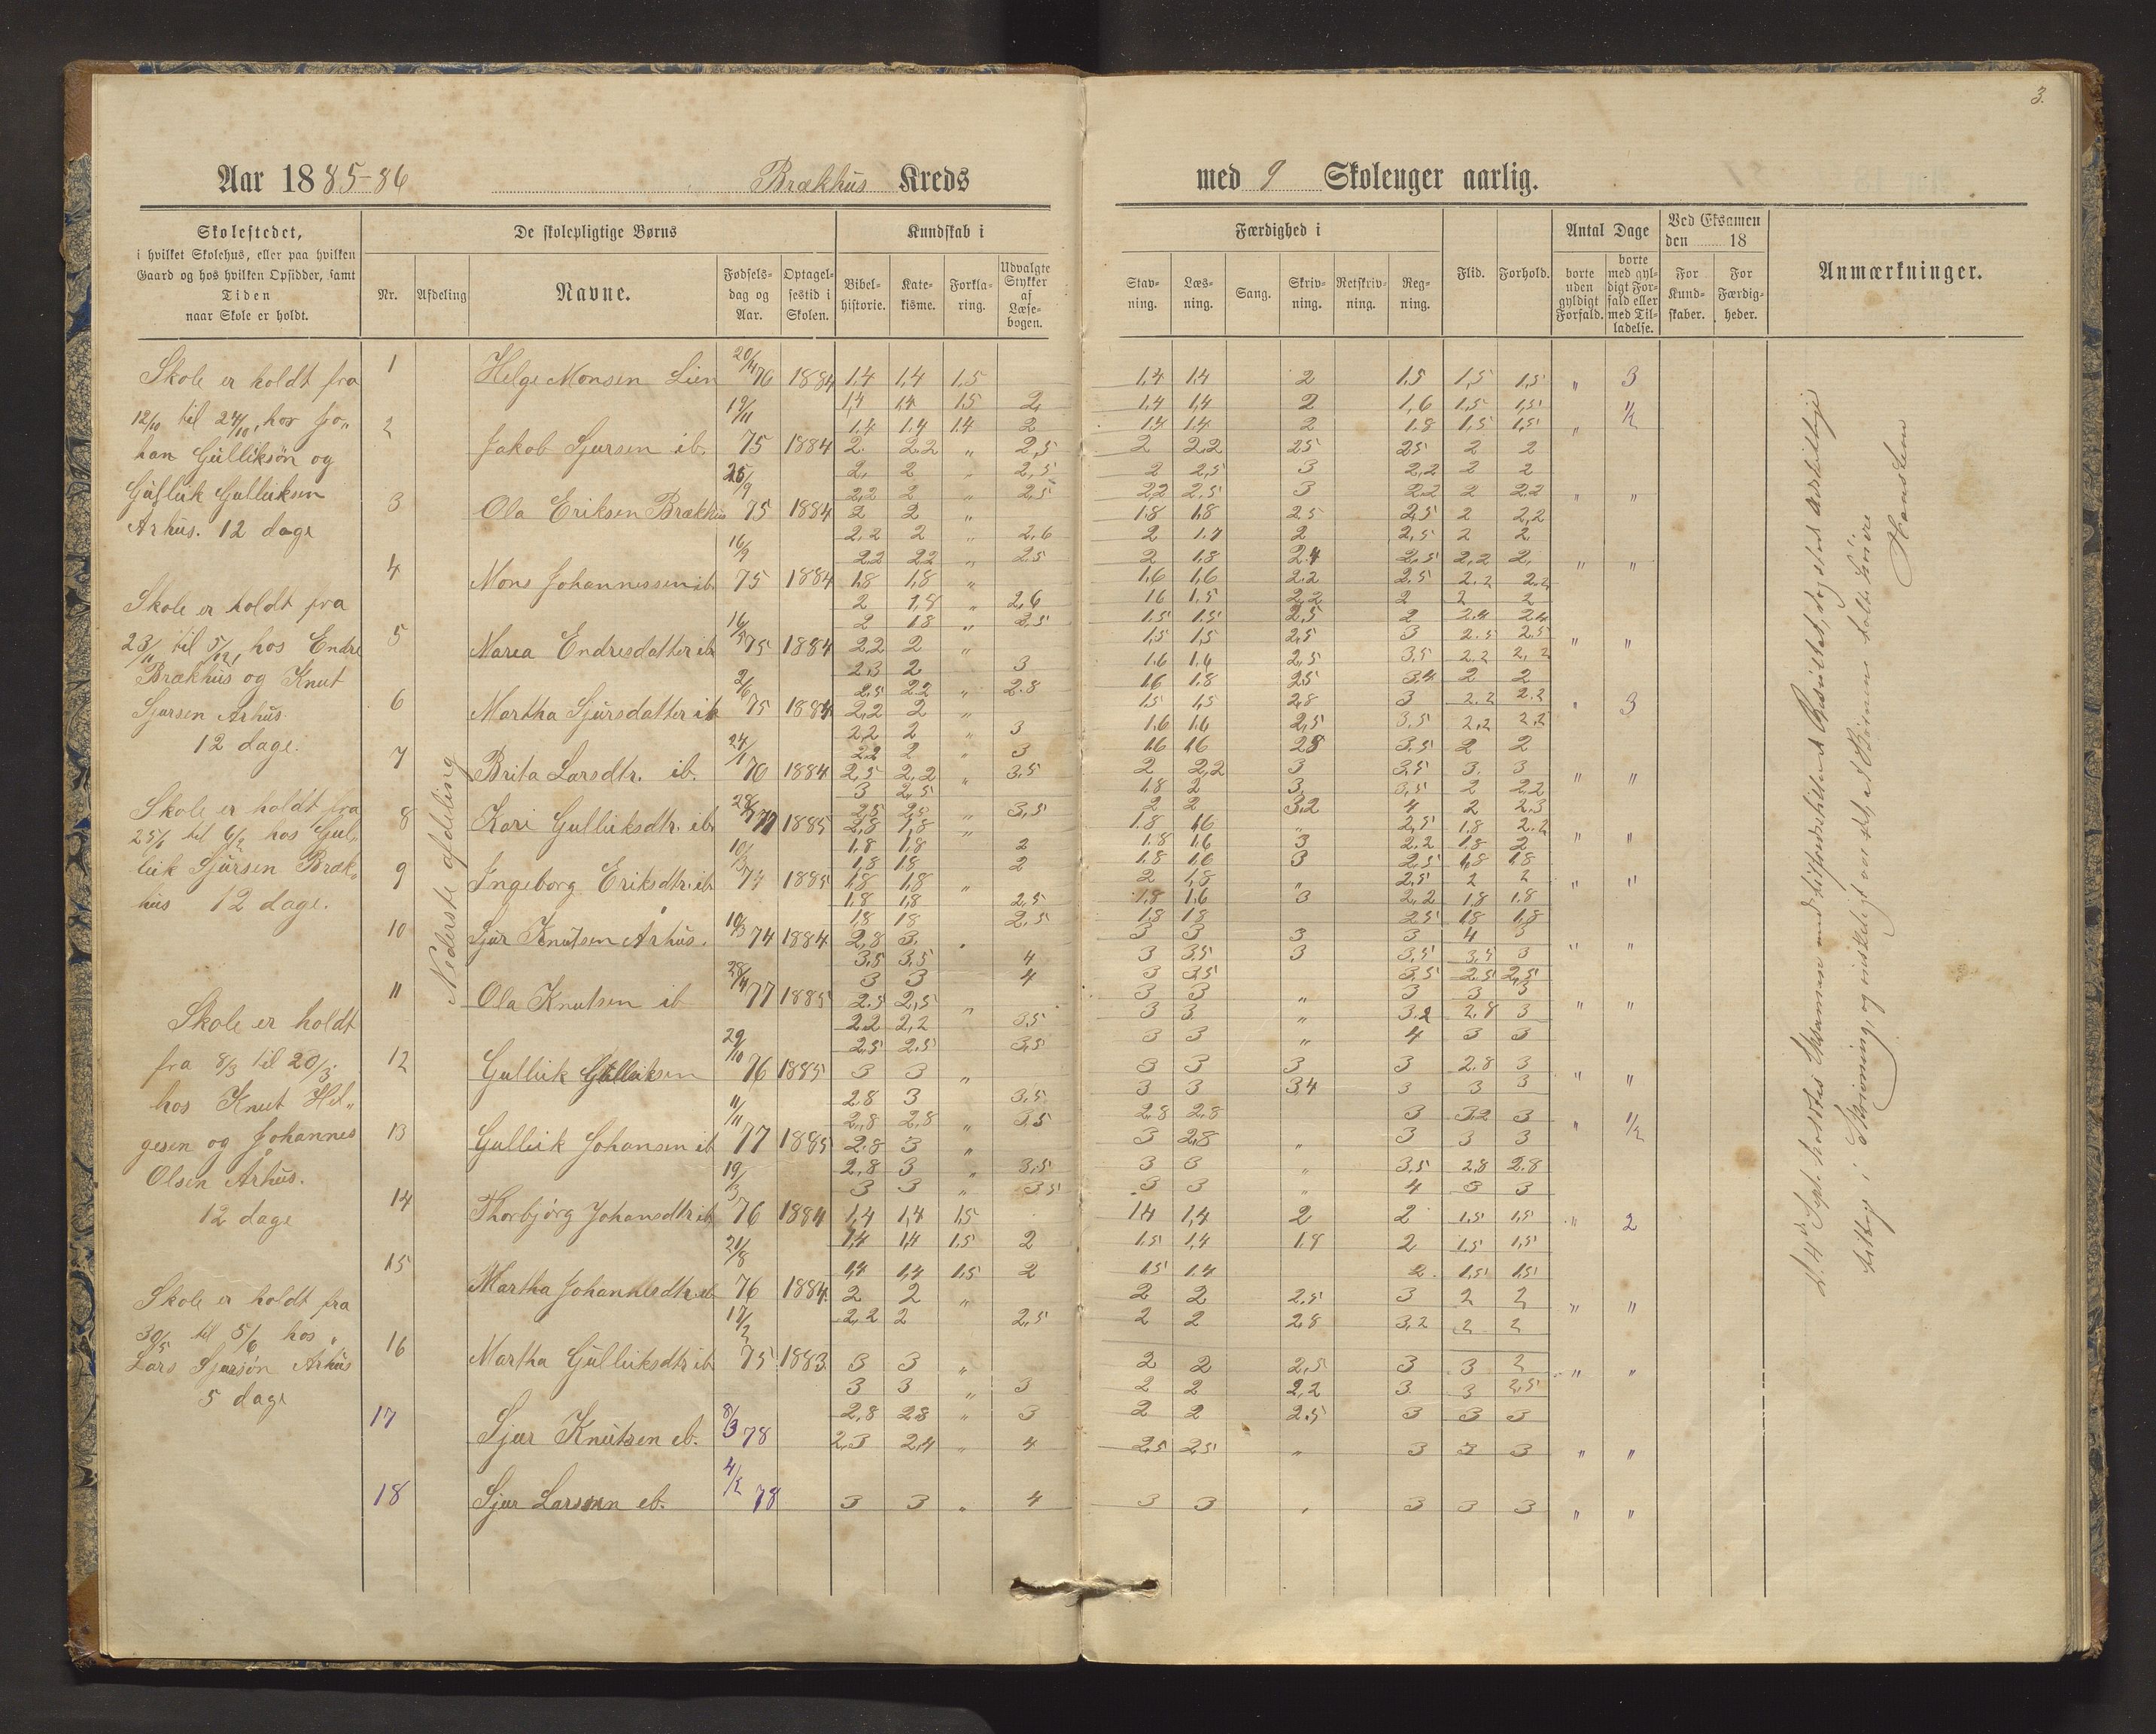 3.
Aar 1885-86 Brækhus Kreds
med 9 Skoleuger aarlig.
Skolestedet,
i hvilket Skolehus, eller paa hvilken
Gaard og hos hvilken Opsidder, samt
Tiden
naar Skole er holdt.
De skolepligtige Børns
Nr.
Afdeling
Navne.
Fødsels-
dag og
Aar.
Optagel-
sestid i
Skolen.
Kundskab i
Bibel-
historie.
Kate-
kisme.
Forkla-
ring.
Udvalgte
Stykker
af
Læse-
bogen.
Færdighed i
Stav-
ning.
Læs-
ning.
Sang.
Skriv-
ning.
Retskriv-
ning.
Reg-
ning.
Flid.
Forhold.
Antal Dage
borte
uden
gyldigt
Forfald.
borte
med gyl-
digt For-
fald eller
med Til-
ladelse.
Ved Eksamen
den 18
For
Kund-
skaber.
For
Færdig-
heder.
Anmærkninger.
Skole er holdt fra
12/10 til 24/10, hos Jo„
han Gulliksøn og
Gullik Gulliksen
Arhus. 12 dage
Skole er holdt fra
23/11 til 5/12, hos Endre
Brækhus og Knut
Sjursen Arhus.
12 dage.
Skole er holdt fra
25/1 til 6/2 hos Gul„
lik Sjursen Bræk„
hus 12 dage.
Skole er holdt
fra 8/3 til 20/3
hos Knut Hel„
gesen og Johannes
Olsen Århus.
12 dage
Skole er holdt fra
30/5 til 5/6 hos „
Lars Sjursøn Arhus
5 dage
Nederste afdeling
1 Helge Monsen Lien 20/4 76 1884 1,4 1,4 1,5 1,4 1,4 2 1,5 1,5 1,5 „ 3
1,4 1,4 1,5 2 1,4 1,4 2 1,6 1,5 1,5
1,4 1,4 1,4 2 1,4 1,4 2 1,8 1,5 1,5
2 Jakob Sjursen ib. 19/11 75 1884 2. 2.2 „ 2,5 2 2,2 25 25 2 2 „ 1/2
2. 2 „ 2,5 2 2,5 3 2,2 2 2
2,2 2 „ 2,5 2,2 2.5 3 2.2 2 2.2
3 Ola Eriksen Brækhus 25/9 75 1884 2 2 „ 1.8 1,8 2.5 2,5 2 2,2 „ „
2.2 2 „ 2,6 2 1.7 2 2,5 2 2
2,2 2,2 „ 2.5 2 1,8 2.4 2,5 2,2 2,
4 Mons Johannessen ib. 16/9 75 1884 1,8 1,8 „ 1.6 1,6 2.2 2.5 2.2 2.2 „ „
2 1,8 „ 2,6 1.6 1.5 2,2 2 2 2
2 1.8 „ 2.5 1.5 1.5 2,5 2 2.4 2.4
5 Marea Endresdatter ib. 75 1884 2.2 2 „ 1,5 1,5 2,5 3 2.5 2.5 „ „
2,3 2 3 1.6 1,4 2,5 3.5 2.2 2,2
2.5 2.2 „ 2.8 1.6 1.8 2.5 3.4 2 2
6 Martha Sjursdatter ib 2/6 75 1884 2,2 2 „ 1.5 1,5 2,8 3 2.2 2.2 „ 3
2.2 2 „ 3 1.6 1.6 2,5 3.5 2,2 2,2
2.2 2 „ 3 1.6 1.6 2.5 3.5 2 2
7 Brita Larsdtr. ib. 24/1 76 1884 2.5 2,2 „ 3,5 2 2,2 3 3,5 3. 3 „ „
3 2,5 1.8 2 3. 3,5 2 2,2
2,5 2,5 „ 3,5 2 2 3,2 4 2 2.3
8 Kari Gulliksdtr. ib. 77 1885 2,8 1,8 „ 1.8 1.6 „ 2,5 1,8 2.2 „ „
1,8 1,8 2 1.8 1,6 3 2.2 1.8 2
1,8 1.8 2 1.8 1.6 3 2.5 1,8 1.8
9 Ingeborg Eriksdtr. ib. 74 1885 1,8 1,8 „ 2 1,8 „ 2.5 2 2 „ „
1.8 1,8 2.5 1.8 1.6 3 2,2 1,8 1.8
1.8 1.8 2.5 1.8 1.8 2.5 1.8 1,8
10 Sjur Knutsen Århus. 10/3 74 1884 2,8 3. „ 3 3 3 3 4 3 „ „
3.5 3.5 4 3 3.5 3 3,5 3.5 3
3 3 4 3 3.5 3.5 2.5 2,5
11 Ola Knutsen ib 28/4 77 1885 2.5 2,5 „ 3 3 „ 3 3 3 „ „
2.2 2,2 3.5 3 3. „ 3.2 2.8 3
2,5 2.5 3,5 3 3 „ 4 3 3
12 Gullik Gulliksen 29/10 76 1885 3 3 „ 3 3 3 3 2.8 3 „ „
2.8 3 3.5 3 3 3,4 3 3 3
2,8 2,8 „ 3.5 2.8 2.8 3 3.2 3
13 Gullik Johansen ib 11/11 77 1885 2.8 3 „ 3 2,8 „ 3 3 3 „ 1/2
2,8 3 „ 3,5 3 3 „ 3,5 2,8 2.8
3 3 „ 3.5 3 3 „ 4 3 3
14 Thorbjørg Johansdtr ib 19/3 76 1884 1,4 1,4 1,5 1.4 1,4 2 2 1.5 1,5 „ 2
1,4 1,4 1.5 2 1.5 1,4 1.8 2 1.5 1,5
1,4 1,4 1,5 2 1.5 1.4 2. 1,5 1,5
15 Martha Johannesdtr. ib 21/8 76 1884. 2 2 „ 2 2 2.5 3 2 2 „ „
2,2 2 2,5 2 2 2.8 3,2 2 2
16 Martha Gulliksdtr ib 17/2 75 1883. 3 3 „ 2 2 2,5 3 3 2 „ „
3 3 „ 3 2 2 2,2 3 3 2,5
2,8 2.8 „ 3 2 2 2.5 3 3 3
17 Sjur Knutsen ib. 8/3 78 2,3 2,4 „ 4 2.5 2.5 „ 3 3 3 „ „
18 Sjur Larsen ib. 78 3 3 „ 4 3 3 „ 3 3 3 „ „